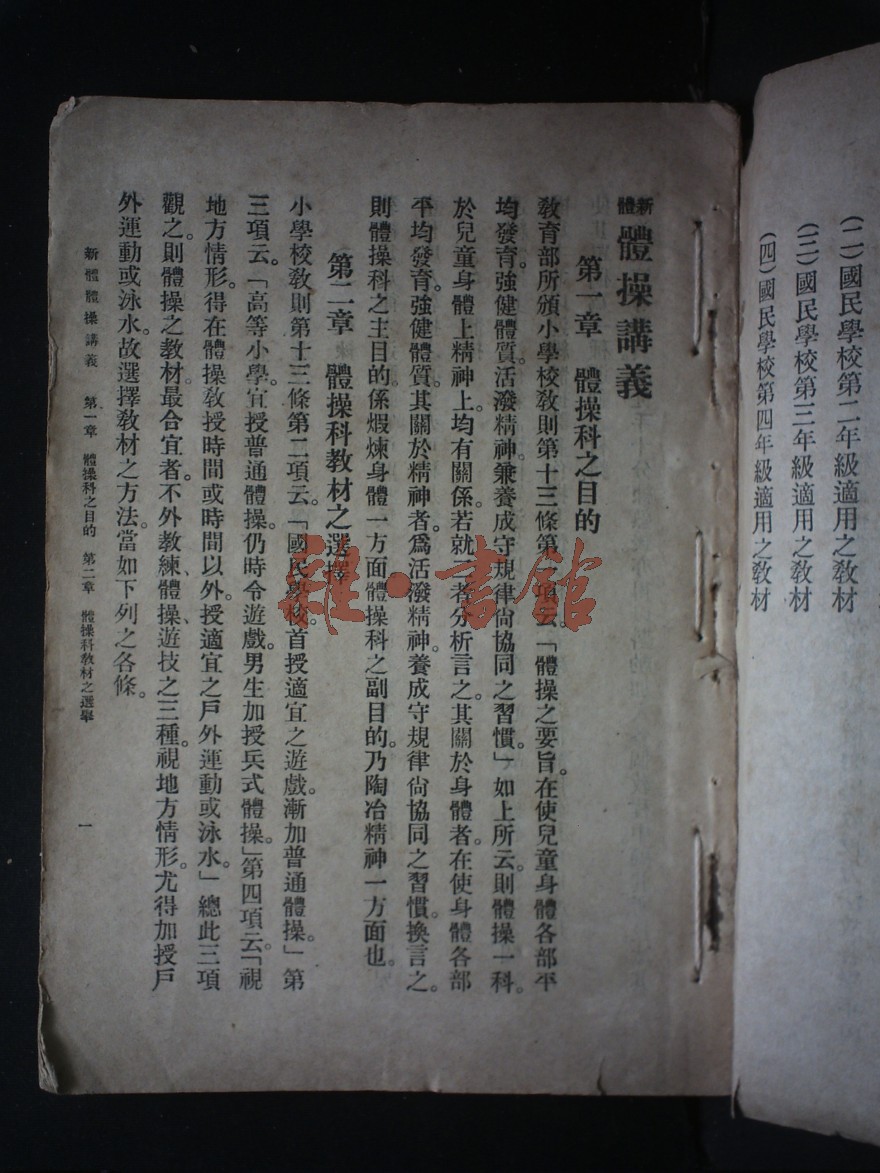 (二)國民學校第二年級適用之敎材
(三)國民學校第三年級適用之敎材
(四)國民學校第四年級適用之敎材
新體體操講義
第一章　體操科之目的
敎育部所頒小學校敎則第十三條第一項云。「體操之要旨。在使兒童身體各部平
均發育。強健體質。活潑精神。兼養成守規律尙協同之習慣」如上所云。則體操一科。
於兒童身體上精神上。均有關係。若就二者分析言之。其關於身體者。在使身體各部
平均發育。強健體質。其關於精神者。爲活潑精神。養成守規律尙協同之習慣。換言之。
則體操科之主目的。係煆煉身體一方面。體操科之副目的。乃陶冶精神一方面也。
第二章　體操科教材之選擇
小學校敎則第十三條第二項云。「國民學校。首授適宜之遊戲。漸加普通體操。」第
三項云。「高等小學。宜授普通體操。仍時令遊戲。男生加授兵式體操。」第四項云。「視
地方情形。得在體操敎授時間或時間以外。授適宜之戶外運動或泳水。」總此三項
觀之。則體操之教材。最合宜者。不外教練、體操、遊技之三種。視地方情形。尤得加授戶
外運動或泳水。故選擇敎材之方法。當如下列之各條。
新體體操講義　第一章　體操科之目的　第二章　體操科敎材之選擧
一
雜·書館